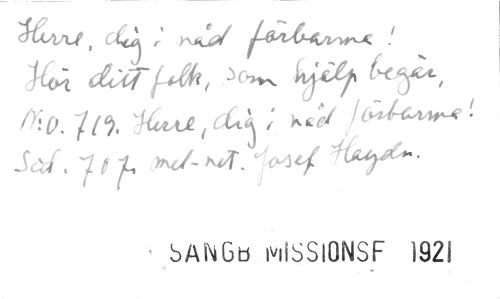 Herre, dig i nåd förbarma!
Hör ditt folk, som hjälp begär,
N:o. 719. Herre, dig i nåd förbarma!
Säd. 707. mel-net. Josef Haydn.
SANGB MISSIONSF 1921